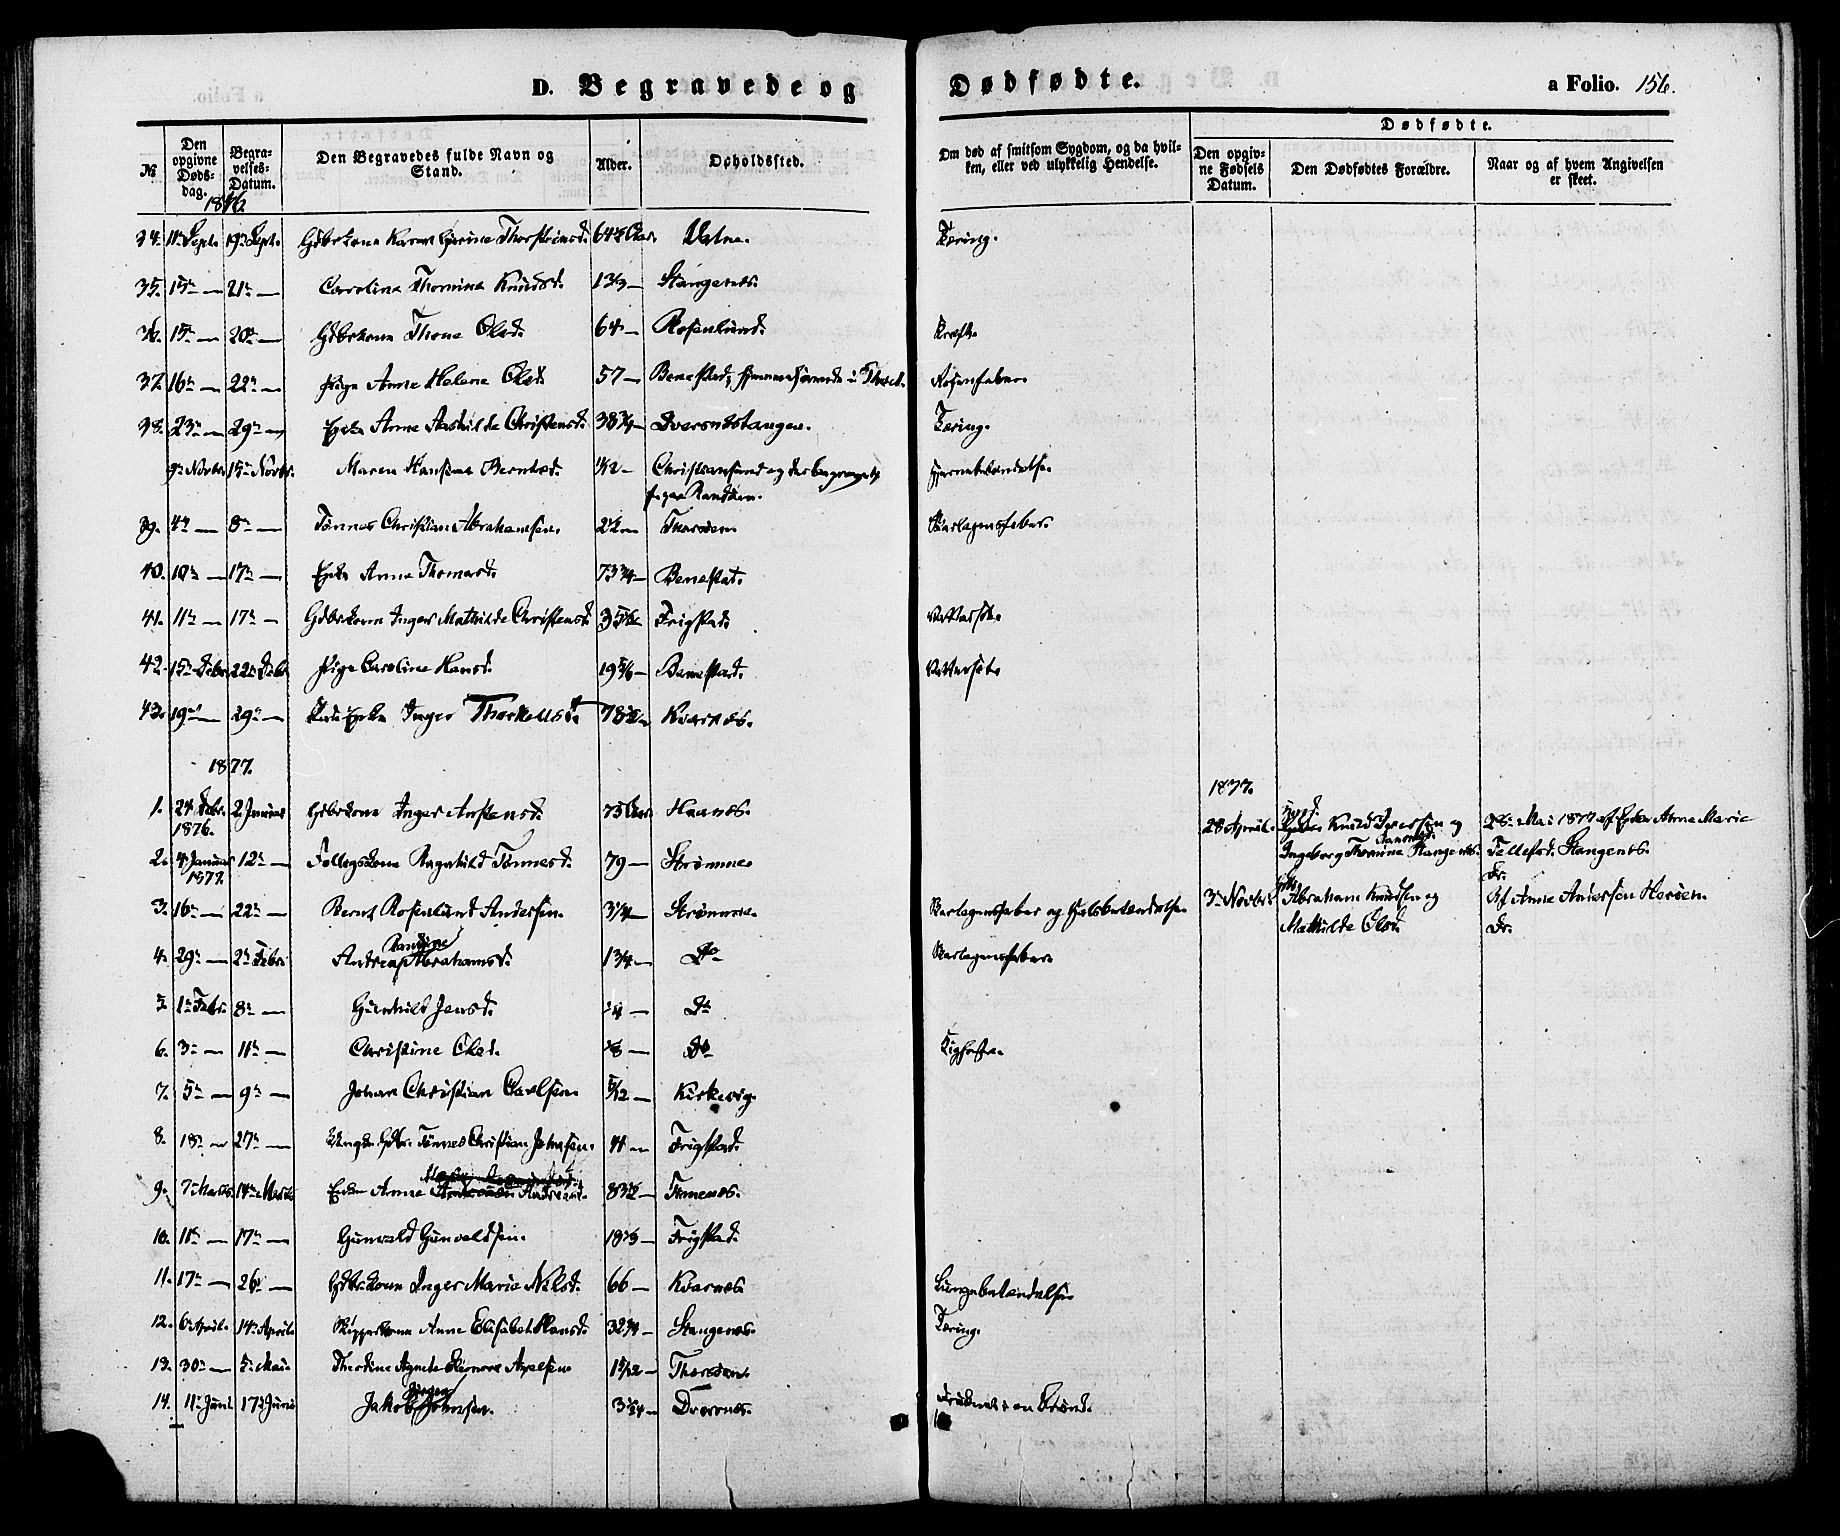 D. Begravede og Dødfødte.
a Folio. 156.
No
Den opgivne Dødsdag.
Begravelses-Datum.
Den Begravedes fulde Navn og Stand.
Alder.
Opholdssted.
Om død af smitsom Sygdom, og da hvilken, eller ved ulykkelig Hendelse.
Dødfødte.
Den opgivne Fødsels Datum.
Den Dødfødtes Forældre.
Naar og af hvem Angivelsen er skeet.
1876.
34. 11 Sept. 19 Sept. Gbrkone Karen Thorsteinsd. 64 Aar. Vatne. Tæring.
35. 15 — 21 — Caroline Thomine Knudsd. Stangenes.
36. 15 — 20 — Gbrkone Thone Olsd. 64 — Rosenlund. Kræft.
37. 16 — 22 — Pige Anne Helene Olsd. 57 — Benestad, Rosenfeber.
38. 23 — 29 — Enke Anne Aashilde Christensd. 38 3/4 — Dversnestangen. Tæring.
9 Novbr. 15 Novbr. Maren Hansine Berntsd. 1/12 — Christiansund og der begravet, Hjernebetændelse.
paa Randøen.
39. 4 — 8 — Tønnes Christian Abrahamsen. 2 1/2 — Tharsøen. Skarlagensfeber.
40. 10 — 17 — Enke Anne Thomasd. 73 3/4 — Benestad.
41. 11 — 17 — Gbrkone Inger Mathilde Christensd. Frigstad. Vattersot.
42. 15 Debr. 22 Debr. Pige Caroline Hansd. 19 5/6 — Benestad. Vattersot.
43. 19 — 29 — Enke Inger Thorkelsd. 78 Kvarnes.
1877.
1877.
1. 24 Debr. 1876. 2 Januar Gbrkone Inger Austensd. 75 Aar. Haanes.
28 April. Knud Iversen og
Ingeborg Thomine Hansd. Stangenes.
28 Mai 1877 af Enke Anne Marie
Tellefsd. Stangenes.
2. 4 Januar 1877. 12 — Føllogskone Ragnhild Tønnesd. 79 — Strømme
3. 16 — 22 — Bernt Rosenlund Andersen. 3 3/4 — Strømme. Skarlagensfeber og Halsbetændelse.
3 Novbr. Abraham Knudsen og
Mathilde Olsd.
Dr.
Af Anne Andersen Herøen.
Dr.
4. 29 — 2 Febr. Andrea Randine Abrahamsd. 1 3/4 — Do Skarlagensfeber.
5. 1 Febr. 8 — Gunhild Jensd. Do
6. 3 — 11 — Christine Olsd. Do Kighoste.
7. 5 — 9 — Johan Christian Carlsen. 5/12 — Kirkevig.
8. 18 — 27 — Ungk. Gbr. Tønnes Christian Johnsen. Frigstad.
9. 7 Marts. 14 Marts Enke Anne Andreasd. 83 Tømenæs.
10. 11 — 17 — Gunvald Gunvaldsen. Frigstad.
11. 17 — 26 — Gbrkone Inger Marie Nilsd. 66 — Kvarnes Lungebetændelse.
12. 6 April. 14 April. Skipperkone Anne Elisabet Hansd. 32 3/4 — Stangenes. Tæring.
13. 30 — 5 Mai. Thordine Agnete Elenore Axelsen 1 5/12 — Tharsøen.
14. 11 Juni 17 Juni Jakob Jørgen Johnsen. Dversnes. Druknet i en Brønd.